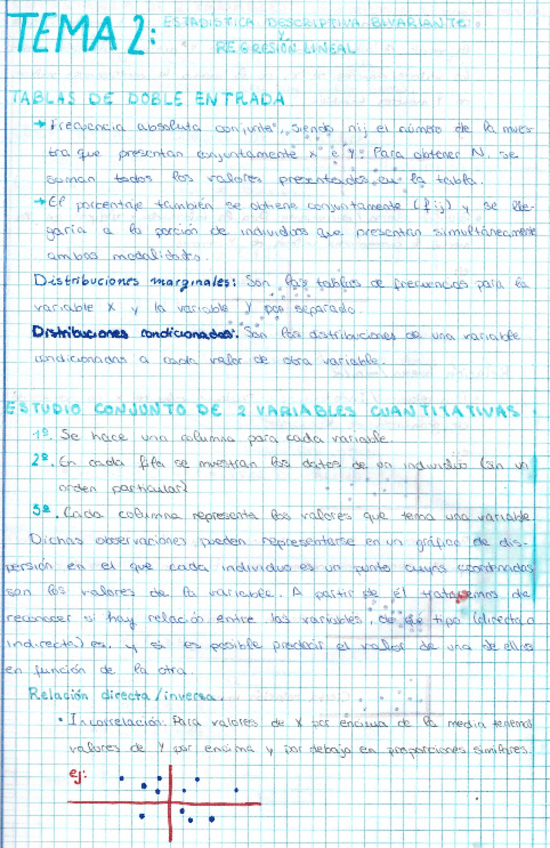 TEMA 2: ESTADÍSTICA DESCRIPTIVA BIVARIANTE
Y
REGRESIÓN LINEAL
TABLAS DE DOBLE ENTRADA
→ Frecuencia absoluta conjunta: siendo nij el número de la mues
tra que presentan conjuntamente x e y. Para obtener N, se
suman todos los valores presentados en la tabla.
→ El porcentaje también se obtiene conjuntamente (fij) y se lle-
garía a la porción de individuos que presentan simultáneamente
ambas modalidades.
Distribuciones marginales: Son las tablas de frecuencias para la
variable X y la variable Y por separado.
Distribuciones condicionadas: Son las distribuciones de una variable
condicionada a cada valor de otra variable.
ESTUDIO CONJUNTO DE 2 VARIABLES CUANTITATIVAS
1º. Se hace una columna para cada variable.
2º. En cada fila se muestran los datos de un individuo (sin un
orden particular)
3º. Cada columna representa los valores que toma una variable
Dichas observaciones pueden representarse en un gráfico de dis-
persión en el que cada individuo es un punto cuyas coordenadas
son los valores de la variable. A partir de él trataremos de
reconocer si hay relación entre las variables, de qué tipo (directa o
indirecta) es, y si es posible predecir el valor de una de ellas
en función de la otra.
Relación directa/inversa.
• Incorrelación: Para valores de X por encima de la media tenemos
valores de Y por encima y por debajo en proporciones similares.
ej: